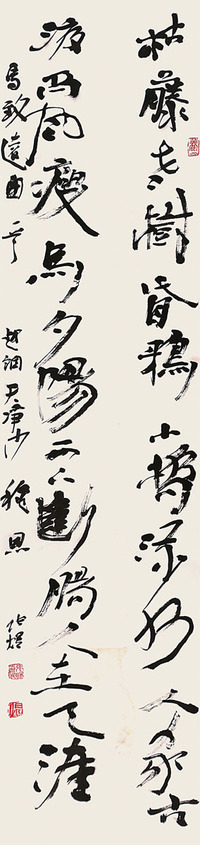 枯藤老樹昏鴉小橋流水人家古
道西風瘦馬夕陽西下斷腸人在天涯
馬致遠曲 越調天净沙 秋思